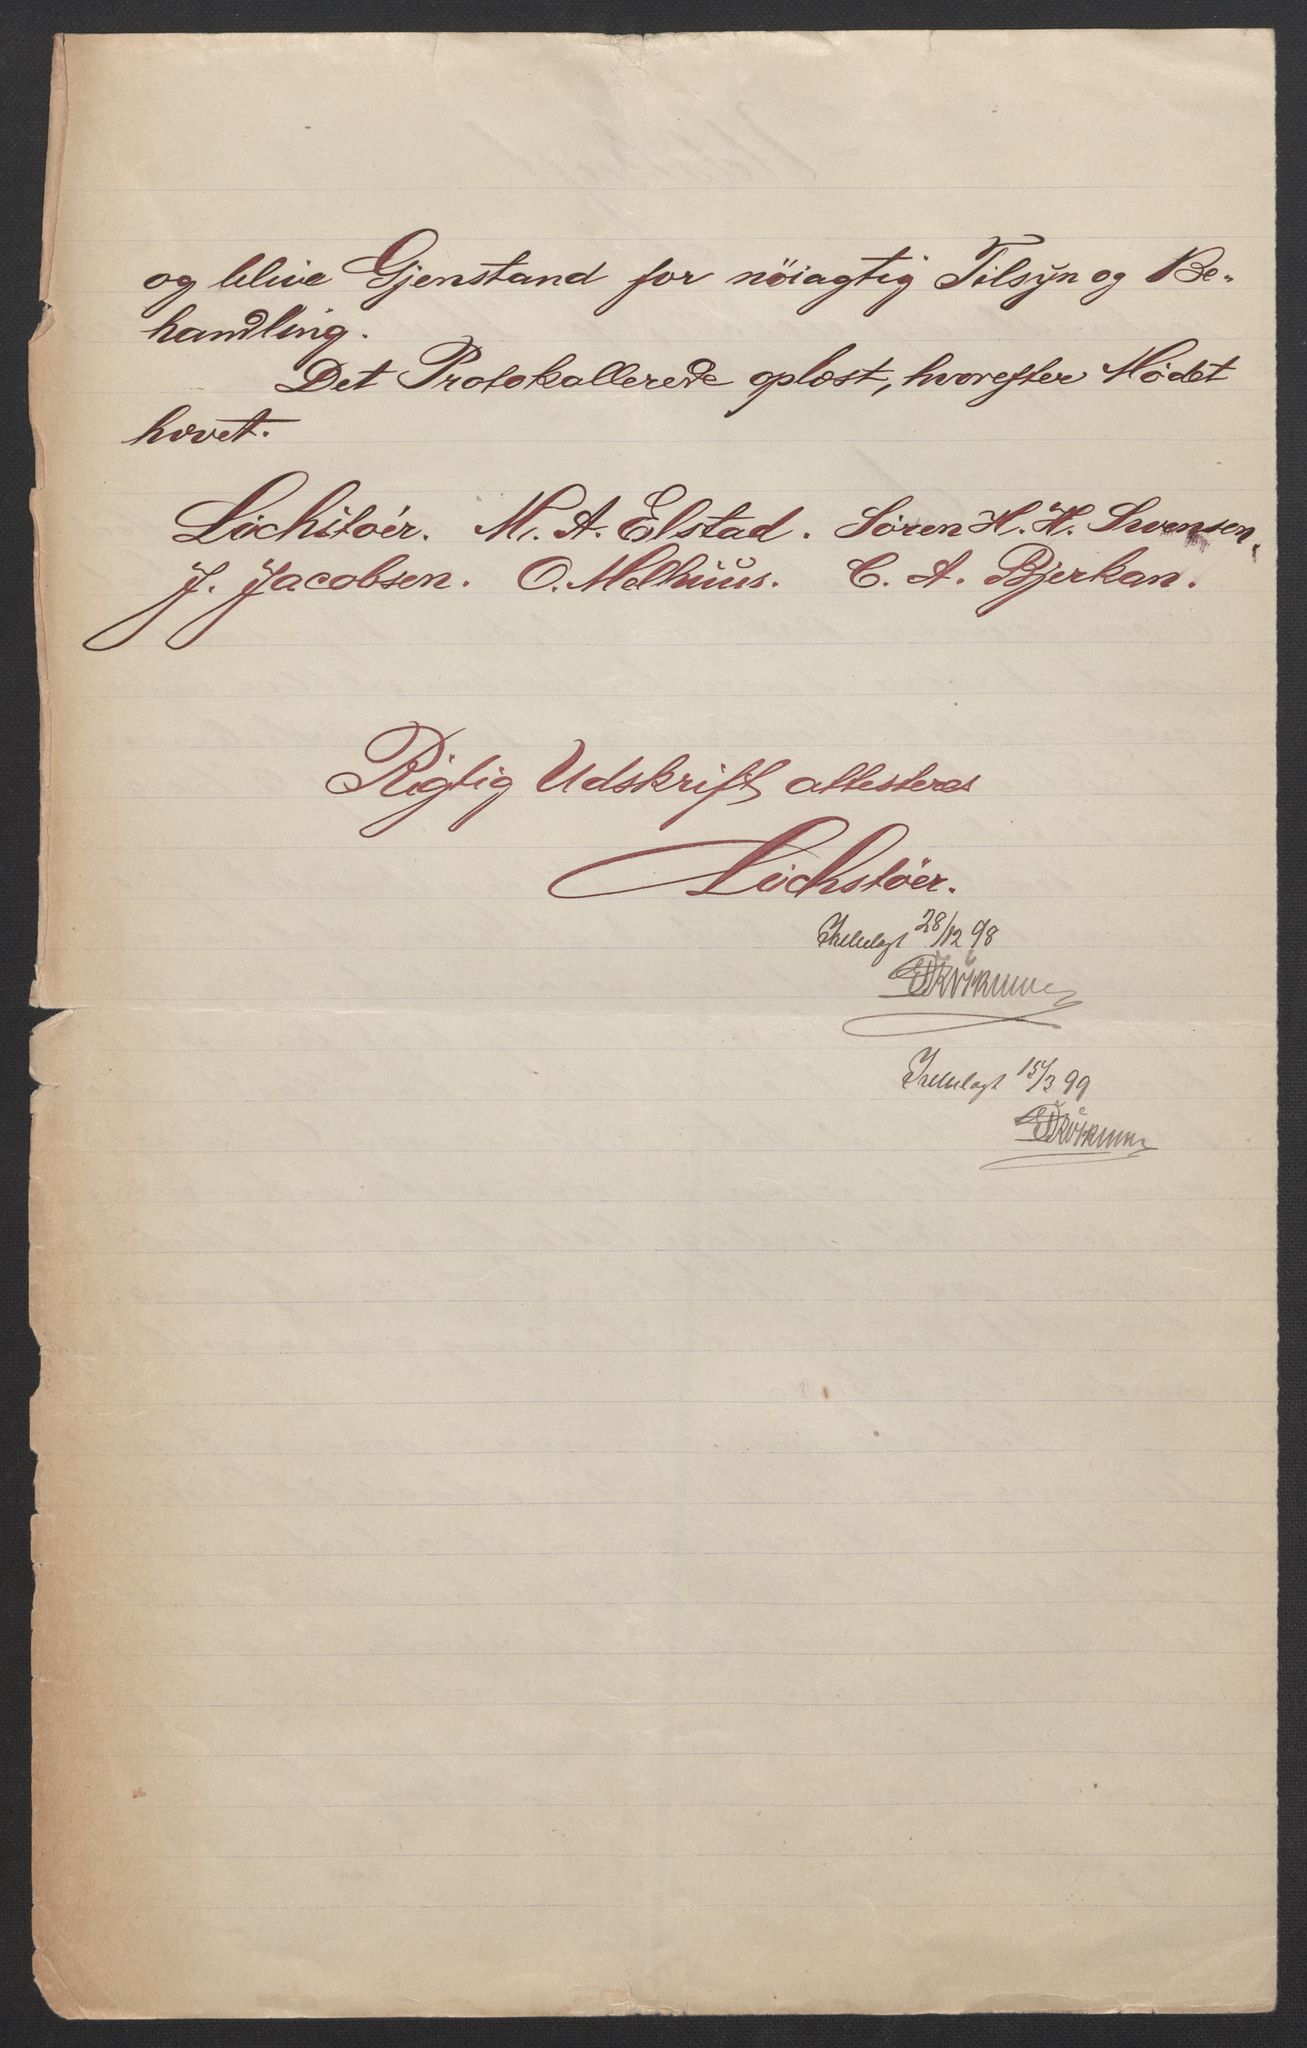 og blive Gjenstand for nöiagtig Tilsyn og Be-
handling.
Det Protokollerede oplæst, hvorefter Mødet
hævet.
Lochstöer. M. A. Elstad. Søren H. H. Svensen.
J. Jacobsen. O. Melhuus. C. A. Bjerkan.
Rigtig Udskrift attesteres
Lochstöer.
Fremlagt 28/12 98
Fremlagt 15/3 99